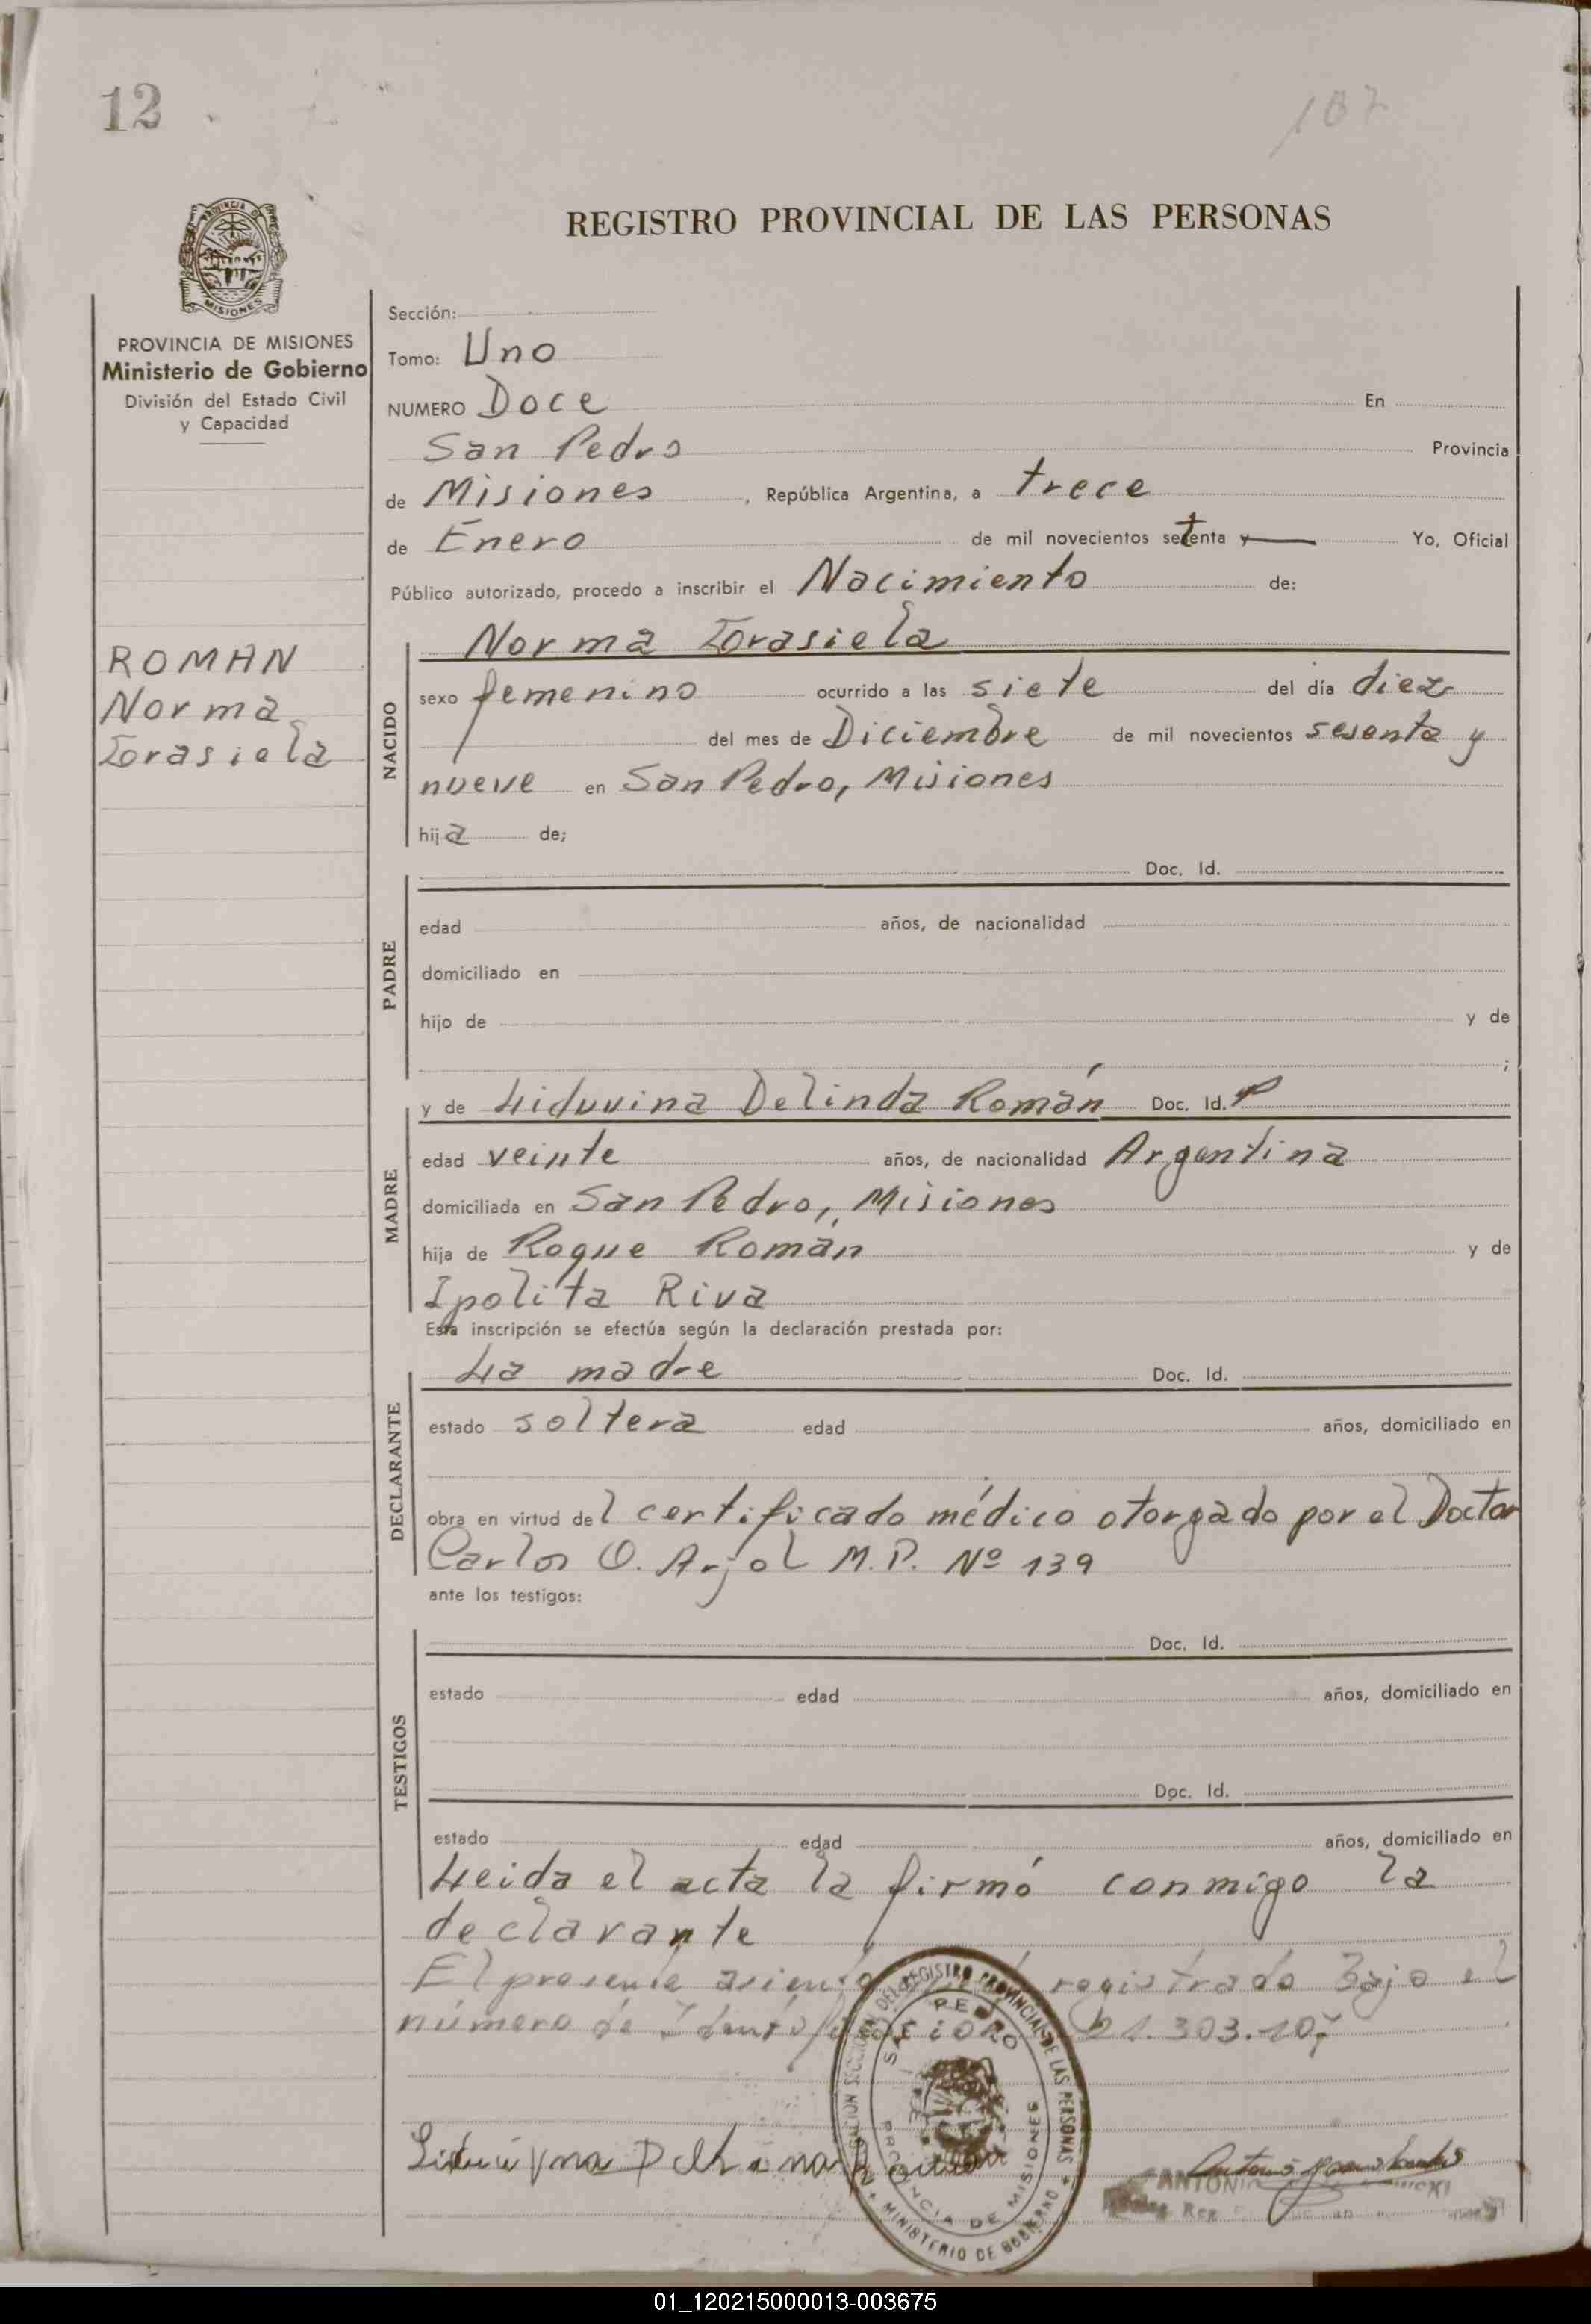 12
107
REGISTRO PROVINCIAL DE LAS PERSONAS
PROVINCIA DE MISIONES
Ministerio de Gobierno
División del Estado Civil
y Capacidad
Sección:
Tomo: Uno
NUMERO Doce En
San Pedro Provincia
de Misiones, República Argentina, a trece
de Enero de mil novecientos setenta y Yo, Oficial
Público autorizado, procedo a inscribir el Nacimiento de:
ROMAN
Norma
Norma
NACIDO
sexo femenino ocurrido a las siete del día diez
del mes de Diciembre de mil novecientos sesenta y
nueve en San Pedro, Misiones
hija de;
PADRE
Doc. Id.
edad años, de nacionalidad
domiciliado en
hijo de y de
;
MADRE
y de Liduvina Delinda Román Doc. Id.
edad veinte años, de nacionalidad Argentina
domiciliada en San Pedro, Misiones
hija de Roque Román y de
Ipolita Riva
Esta inscripción se efectúa según la declaración prestada por:
DECLARANTE
La madre Doc. Id.
estado soltera edad años, domiciliado en
obra en virtud del certificado médico otorgado por el Doctor
Carlos O. Arjol M.P. Nº 139
ante los testigos:
TESTIGOS
Doc. Id.
estado edad años, domiciliado en
Doc. Id.
estado edad años, domiciliado en
Leida el acta la firmó conmigo la
declarante
El presente asiento registrado Bajo el
número de Identificación 21.303.107
DEL REGISTRO PROVINCIAL DE LAS PERSONAS
SAN PEDRO
PROVINCIA DE MISIONES
MINISTERIO DE GOBIERNO
01_120215000013-003675